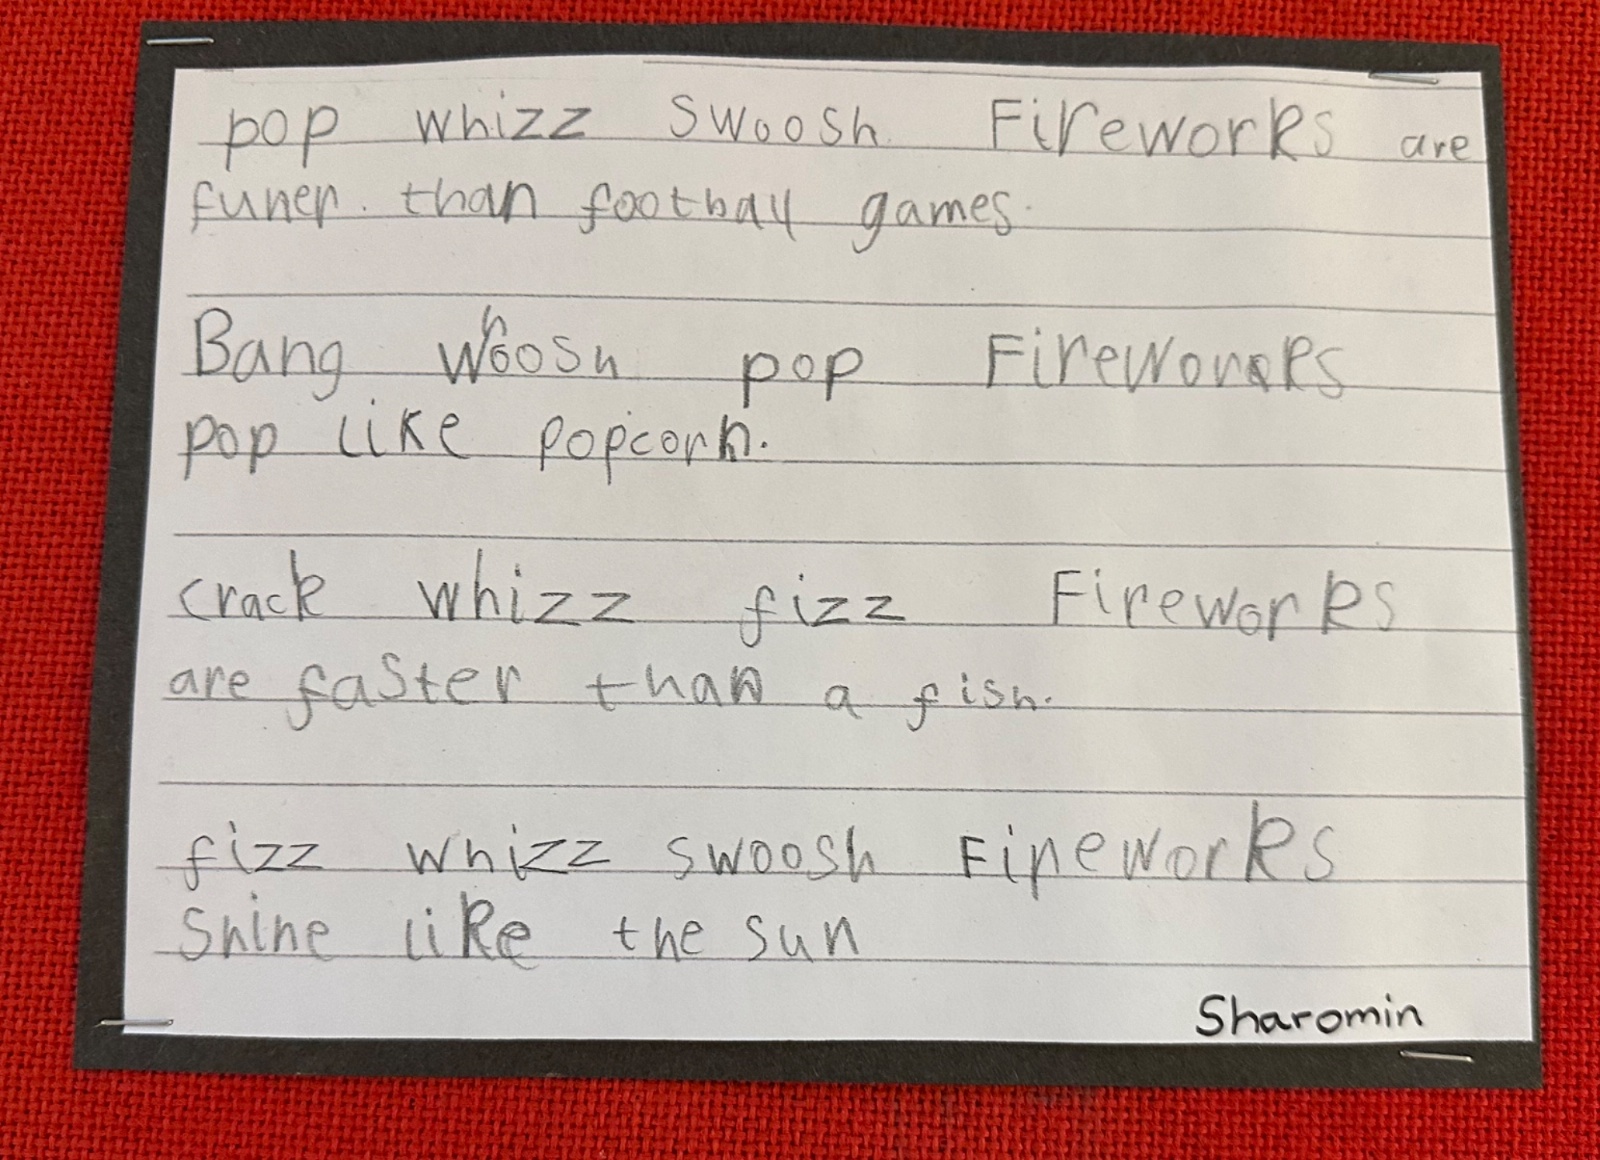 pop whizz swoosh Fireworks are
funer. than football games.
Bang whoosh pop Fireworks
pop like popcorn.
crack whizz fizz Fireworks
are faster than a fish.
fizz whizz swoosh Fireworks
Shine like the sun
Sharomin